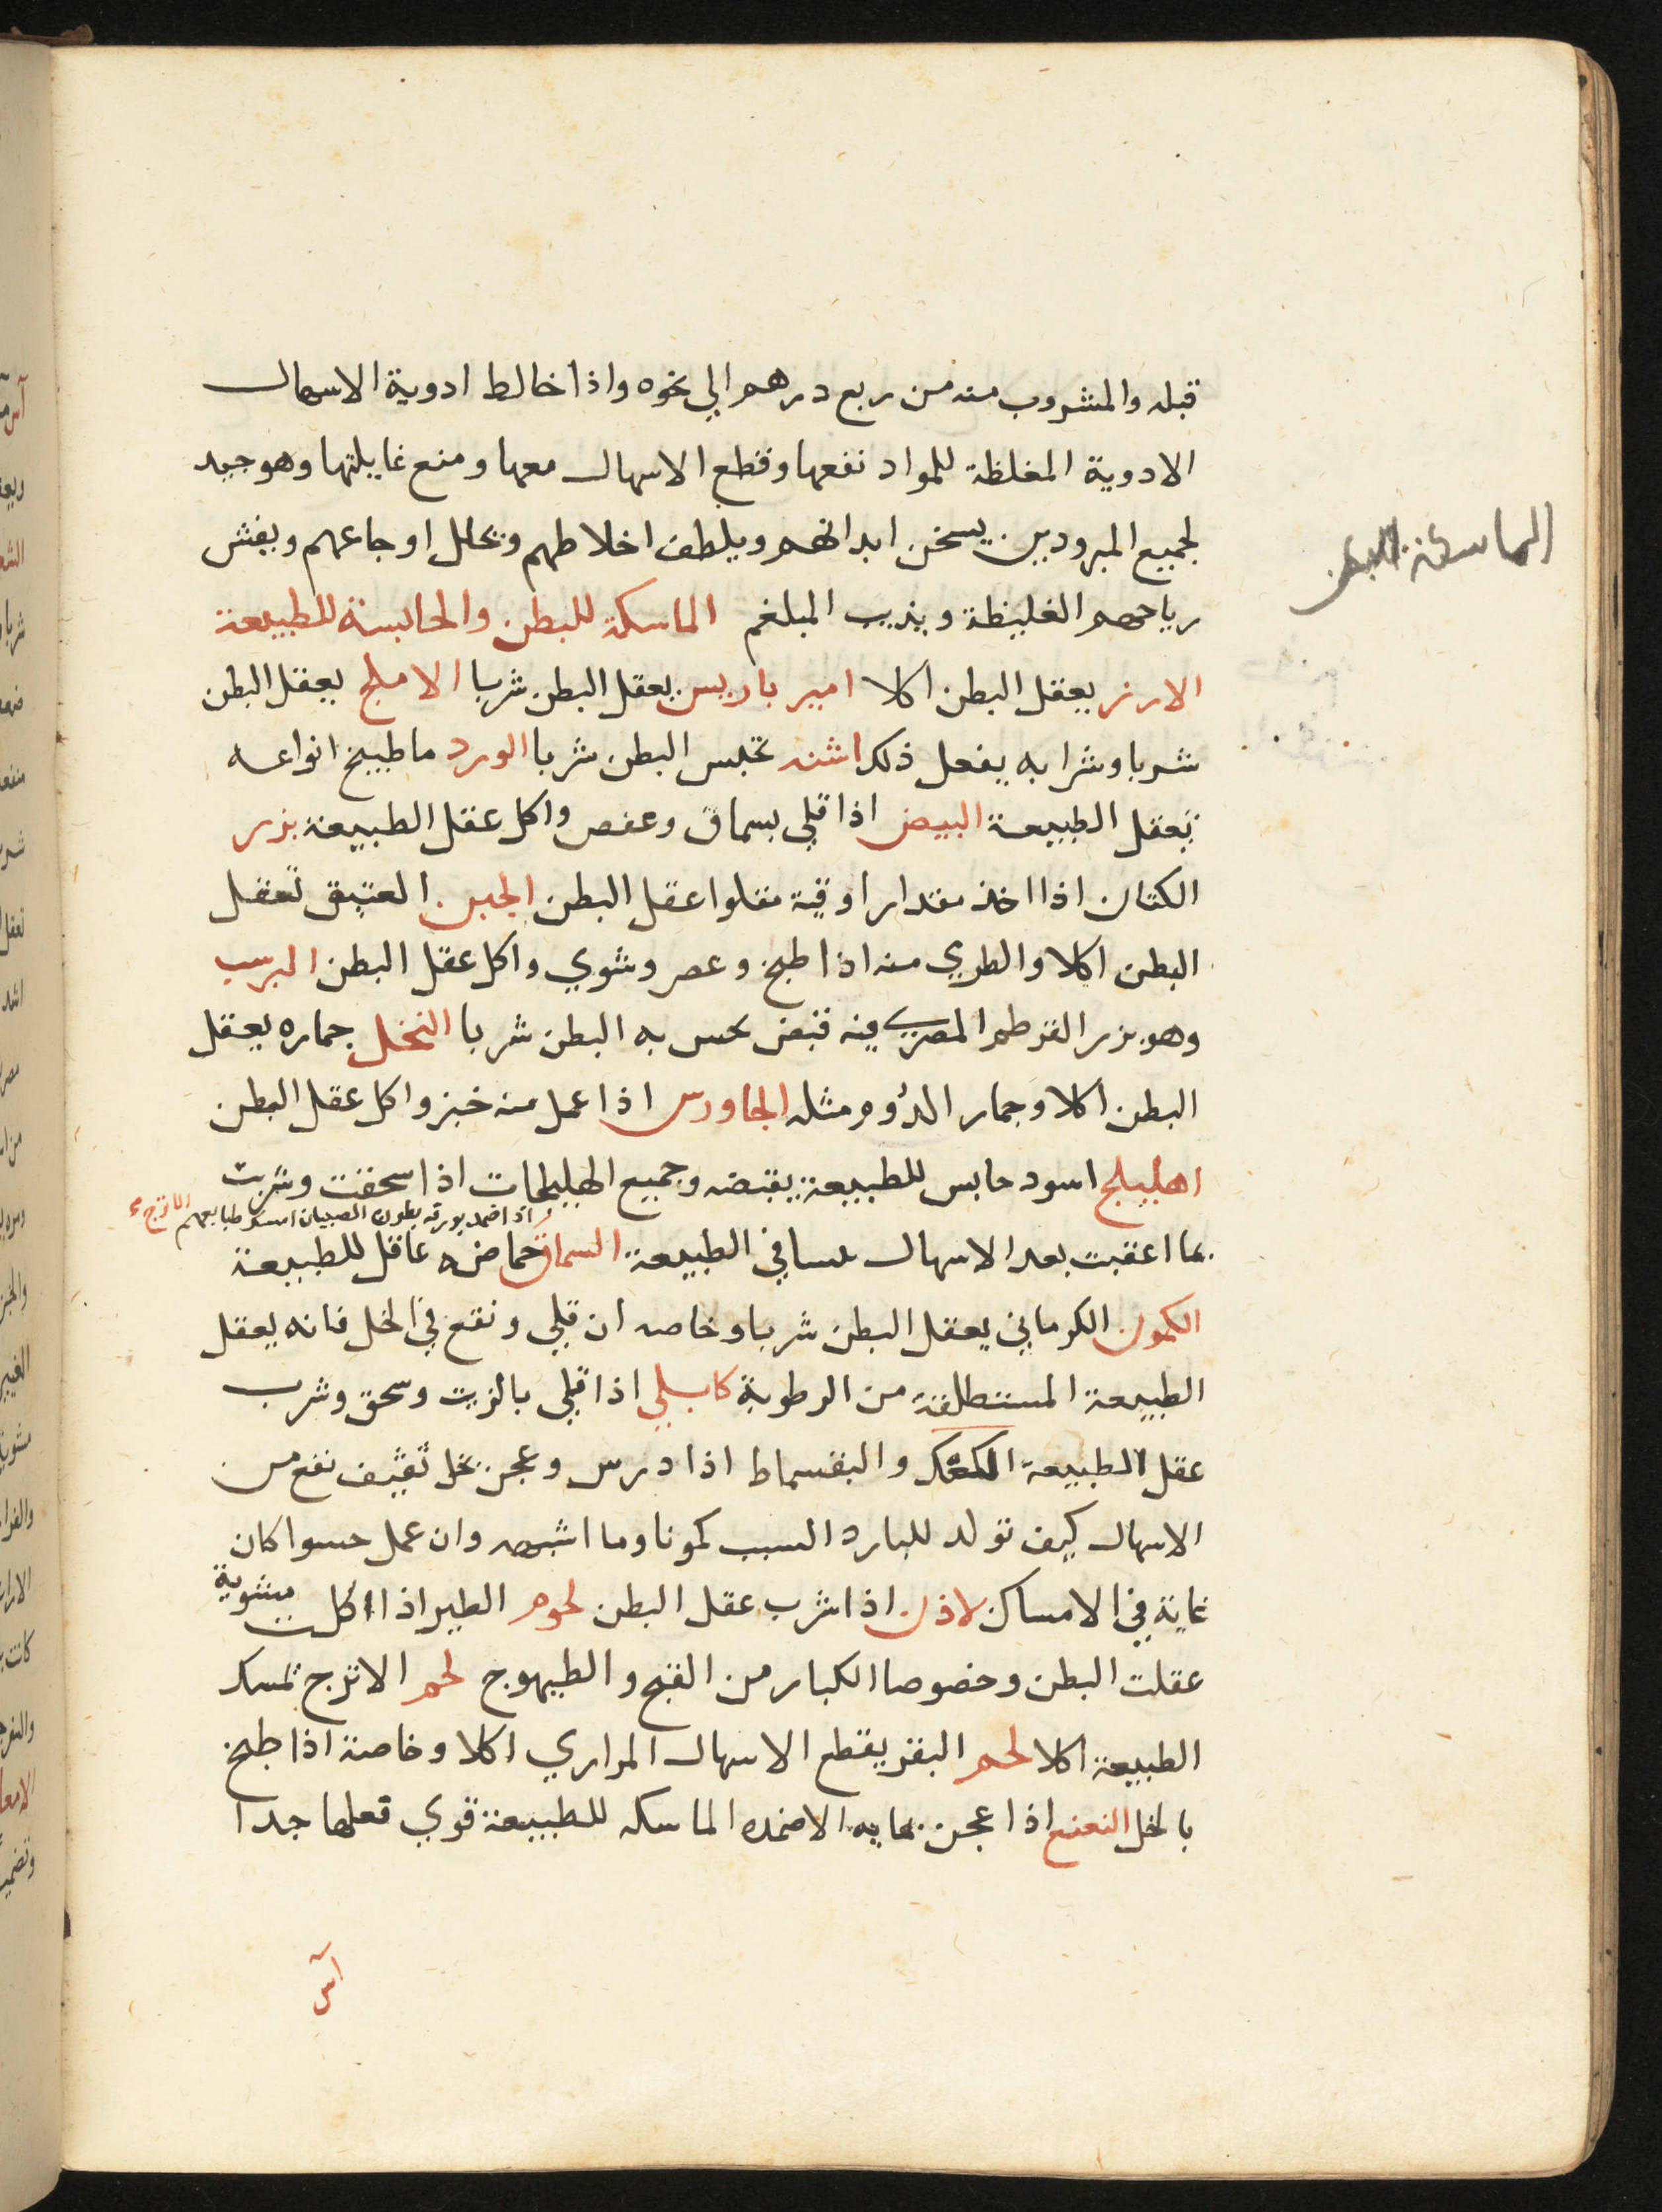 قبله والمشروب منه من ربع درهم الي نحوه واذا خالط ادوية الاسهال
الادوية المغلظة للمواد نفعها وقطع الاسهال معها ومنع غايلتها وهو جيد
لجميع المبرودين يسخن ابدانهم ويلطف اخلاطهم ويحلل اوجاعهم ويفش
رياحهم الغليظة ويذيب البلغم الماسكة للبطن والحابسة للطبيعة
الماسكة البطن
الارز يعقل البطن اكلا امير باريس يعقل البطن شربا الاملج يعقل البطن
شربا وشرابه يفعل ذلك اشنه تحبس البطن شربا الورد ماطبيخ انواعه
تعقل الطبيعة البيض اذا قلي بسماق وعفص واكل عقل الطبيعة بزر
الكتان اذا اخذ مقدار اوقية مقلوا عقل البطن الجبن العتيق تعقل
البطن اكلا والطري منه اذا طبخ وعصر وشوي واكل عقل البطن
وهو بزر القرطم المصري فيه قبض تحبس به البطن شربا النخل جماره يعقل
البطن اكلا وجمار الدوم مثله الجاورس اذا عمل منه خبز واكل عقل البطن
اهليلج اسود حابس للطبيعة يقبضه وجميع الهليلجات اذا سحقت وشربت
اذا ضمد بورقه بطون الصبيان امسك طبايعهم
بما اعقبت بعد الاسهال يبسا في الطبيعة السماق حماضه عاقل للطبيعة
الكمون الكرماني يعقل البطن شربا وخاصه ان قلي ونقع في الخل فانه يعقل
الطبيعة المستطلقة من الرطوبة كابلي اذا قلي بالزيت وسحق وشرب
عقل الطبيعة الكعك والبقسماط اذا درس وعجن بخل ثقيف نفع من
الاسهال كيف تولد للبارد السبب كمونا وما اشبهه وان عمل حسوا كان
غاية في الامساك لاذن اذا شرب عقل البطن لحوم الطير اذا اكلت مشوية
عقلت البطن وخصوصا الكبار من القبج والطيهوج لحم الاترج تمسك
الطبيعة اكلا لحم البقر يقطع الاسهال المراري اكلا وخاصة اذا طبخ
بالخل النعنع اذا عجن بمايه الاضمده الماسكه للطبيعة قوي فعلها جدا
آس